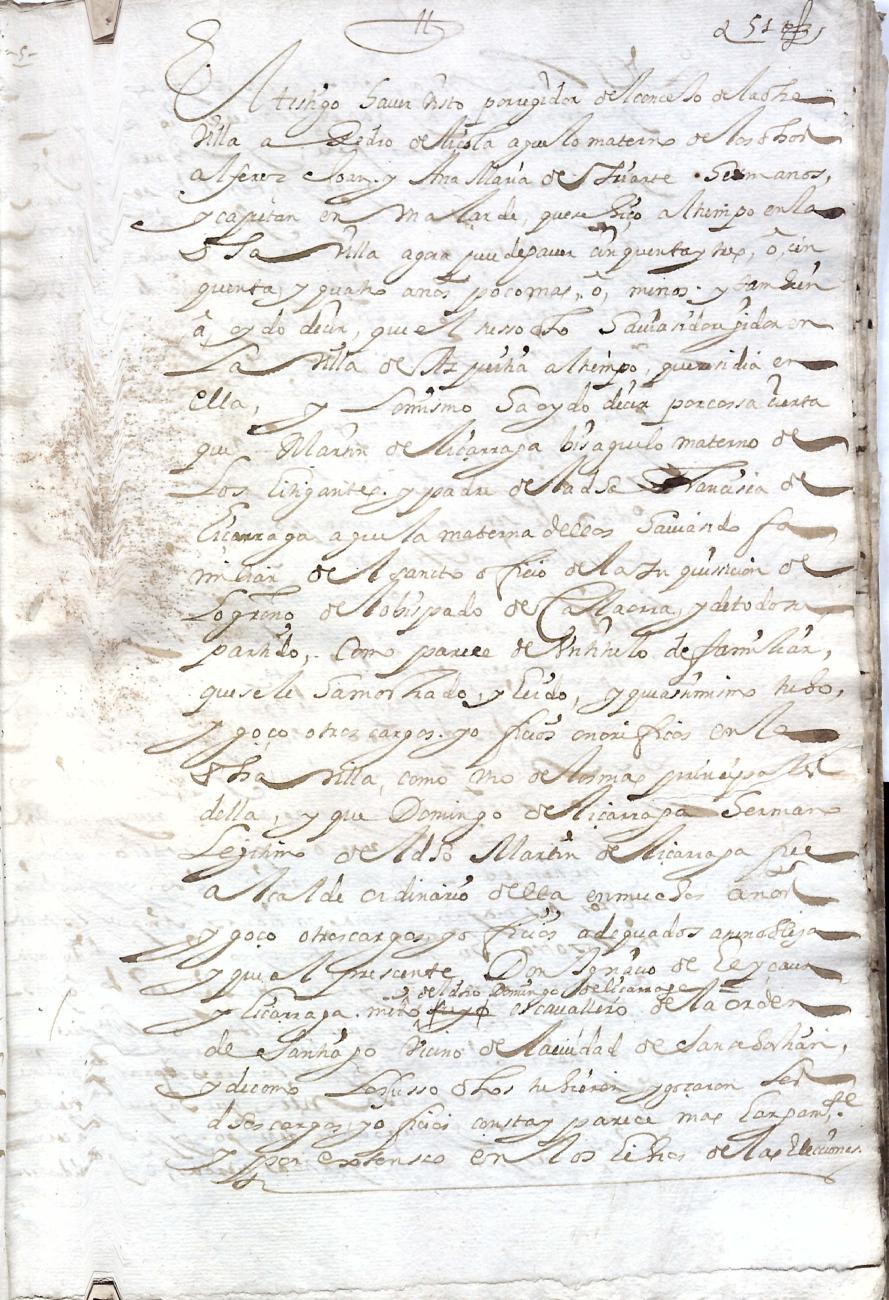 11
51
El testigo haver visto por regidor del concejo de la dha
Villa a Pedro de Liçola aguelo materno de los dhos
alferez Joan y Ana Maria de Iriarte hermanos,
y capitan en un alarde, que se hiço al tiempo en la
dha Villa agora puede haver cinquenta y tres, ô, cin
quenta y quatro años poco mas, ô, menos. y tambien
â, oydo decir, que el susso dho havia sido regidor en
La Villa de Azpeitia al tiempo, que residia en
ella, y Lo mismo ha oydo decir por cossa cierta
que Martin de Liçarraga bisaguelo materno de
Los litigantes. y padre de la dha Francisca de
Liçarraga aguela materna dellos havia sido fa
miliar del sancto officio de la Inquissicion de
Logroño del obispado de Calaorra, y de todo su
partido, Como parece del titulo de familiar,
que se le ha mostrado, y leido, y que assimismo tubo,
y goço otros cargos. y officios onorificos en la
dha Villa, como uno de los mas principales
della, y que Domingo de Liçarraga hermano
Legitimo del dho Martin de Liçarraga fue
alcalde ordinario della en muchos años
y goço otros cargos, y officios adequados a su nobleça
y que al pressente Don Ignacio de
del dho Domingo de liçarraga
y Liçarraga. nieto suyo es cavallero de la orden
de Santiago Vecino de la ciudad de San sebastian,
y de como Los susso dhos tubieron y goçaron los
dhos cargos, y officios consta y parece mas largam.te
y por extensso en los libros de las Elecciones.